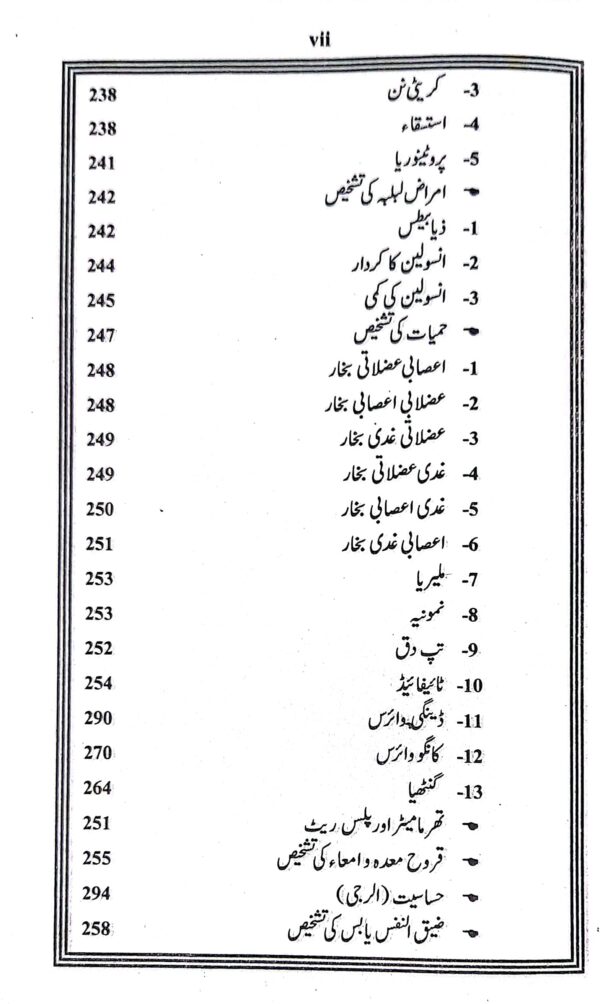 vii
3- کریٹی نن 238
4- استسقاء 238
5- پروٹینوریا 241
☚ امراض لبلبہ کی تشخیص 242
1- ذیابیطس 242
2- انسولین کا کردار 244
3- انسولین کی کمی 245
☚ حمیات کی تشخیص 247
1- اعصابی عضلاتی بخار 248
2- عضلاتی اعصابی بخار 248
3- عضلاتی غدی بخار 249
4- غدی عضلاتی بخار 249
5- غدی اعصابی بخار 250
6- اعصابی غدی بخار 251
7- ملیریا 253
8- نمونیہ 253
9- تپ دق 252
10- ٹائیفائیڈ 254
11- ڈینگی وائرس 290
12- کانگو وائرس 270
13- گنٹھیا 264
☚ تھرمامیٹر اور پلس ریٹ 251
☚ قروح معدہ و امعاء کی تشخیص 255
☚ حساسیت (الرجی) 294
☚ ضیق النفس یابس کی تشخیص 258